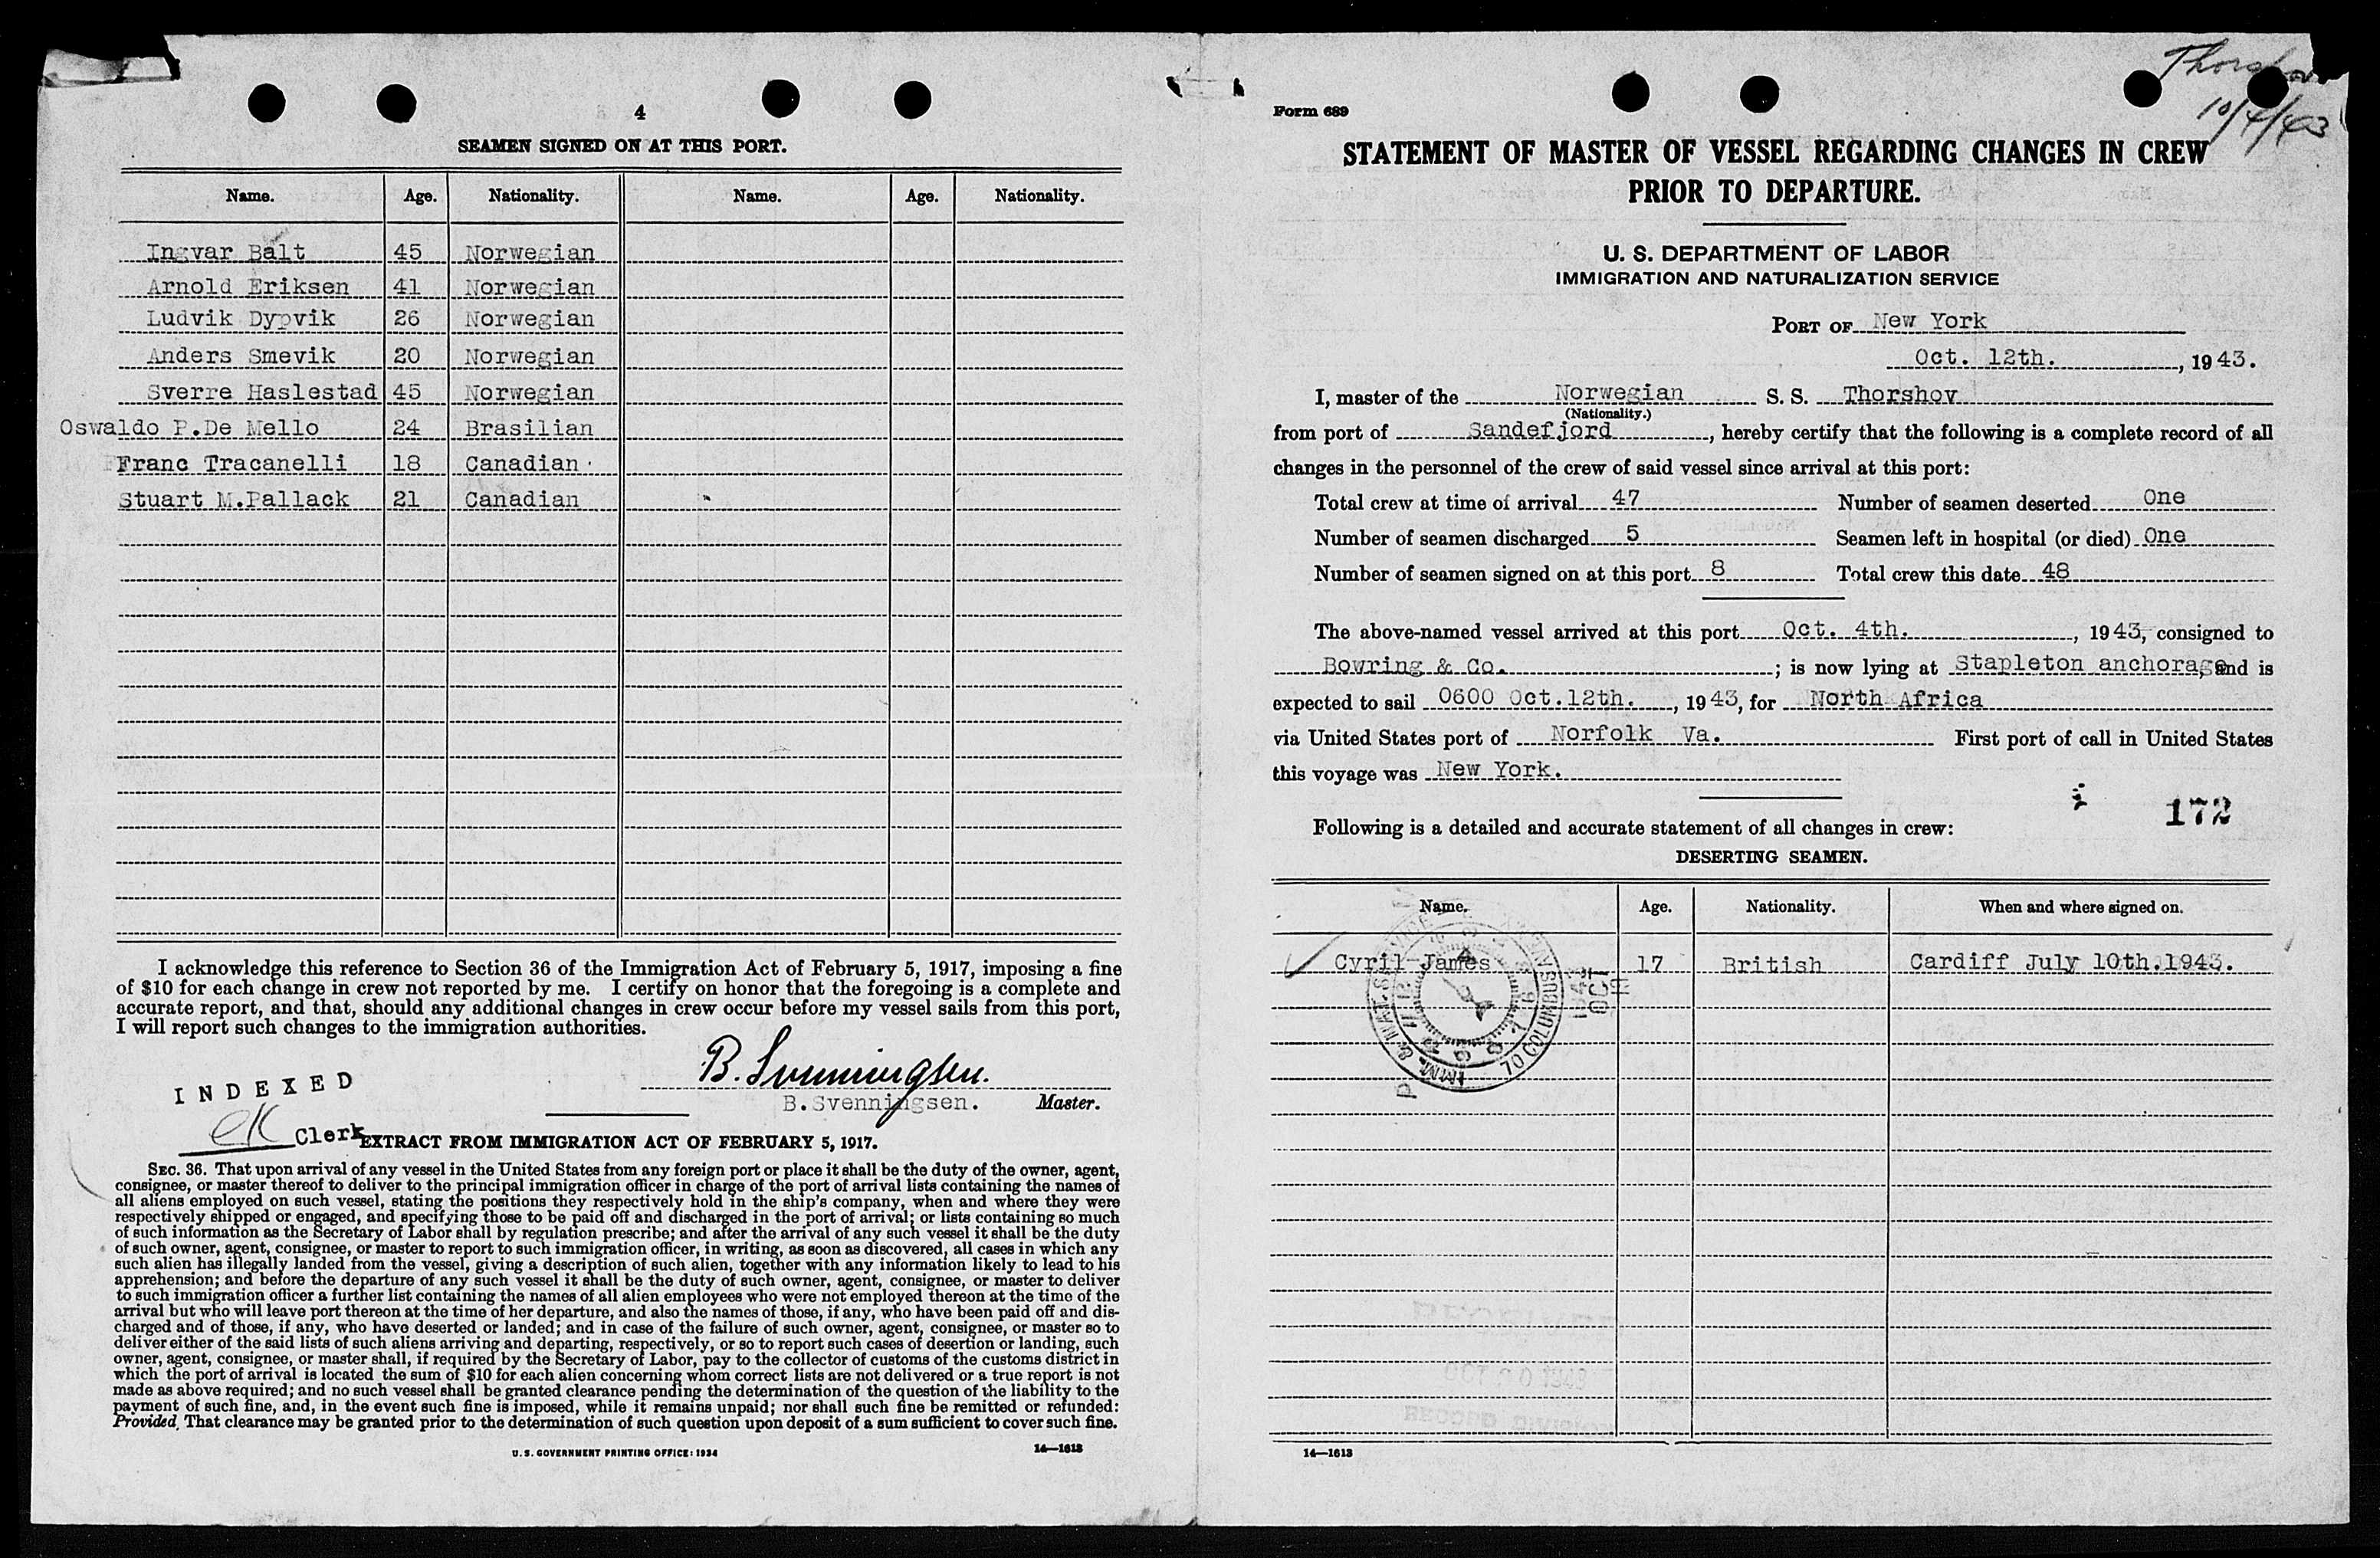 4
SEAMEN SIGNED ON AT THIS PORT.
Name. Age. Nationality. Name. Age. Nationality.
Ingvar Balt 45 Norwegian
Arnold Eriksen 41 Norwegian
Ludvik Dypvik 26 Norwegian
Anders Smevik 20 Norwegian
Sverre Haslestad 45 Norwegian
Oswaldo P.De Mello 24 Brasilian
Franc Tracanelli 18 Canadian
Stuart M.Pallack 21 Canadian
I acknowledge this reference to Section 36 of the Immigration Act of February 5, 1917, imposing a fine
of $10 for each change in crew not reported by me. I certify on honor that the foregoing is a complete and
accurate report, and that, should any additional changes in crew occur before my vessel sails from this port,
I will report such changes to the immigration authorities.
B. Svenningsen.
B.Svenningsen. Master.
INDEXED
EK Clerk
EXTRACT FROM IMMIGRATION ACT OF FEBRUARY 5, 1917.
SEC. 36. That upon arrival of any vessel in the United States from any foreign port or place it shall be the duty of the owner, agent,
consignee, or master thereof to deliver to the principal immigration officer in charge of the port of arrival lists containing the names of
all aliens employed on such vessel, stating the positions they respectively hold in the ship's company, when and where they were
respectively shipped or engaged, and specifying those to be paid off and discharged in the port of arrival; or lists containing so much
of such information as the Secretary of Labor shall by regulation prescribe; and after the arrival of any such vessel it shall be the duty
of such owner, agent, consignee, or master to report to such immigration officer, in writing, as soon as discovered, all cases in which any
such alien has illegally landed from the vessel, giving a description of such alien, together with any information likely to lead to his
apprehension; and before the departure of any such vessel it shall be the duty of such owner, agent, consignee, or master to deliver
to such immigration officer a further list containing the names of all alien employees who were not employed thereon at the time of the
arrival but who will leave port thereon at the time of her departure, and also the names of those, if any, who have been paid off and dis-
charged and of those, if any, who have deserted or landed; and in case of the failure of such owner, agent, consignee, or master so to
deliver either of the said lists of such aliens arriving and departing, respectively, or so to report such cases of desertion or landing, such
owner, agent, consignee, or master shall, if required by the Secretary of Labor, pay to the collector of customs of the customs district in
which the port of arrival is located the sum of $10 for each alien concerning whom correct lists are not delivered or a true report is not
made as above required; and no such vessel shall be granted clearance pending the determination of the question of the liability to the
payment of such fine, and, in the event such fine is imposed, while it remains unpaid; nor shall such fine be remitted or refunded:
Provided, That clearance may be granted prior to the determination of such question upon deposit of a sum sufficient to cover such fine.
U. S. GOVERNMENT PRINTING OFFICE: 1934 14—1613
Thorshov
10/4/43
Form 689
STATEMENT OF MASTER OF VESSEL REGARDING CHANGES IN CREW
PRIOR TO DEPARTURE.
U. S. DEPARTMENT OF LABOR
IMMIGRATION AND NATURALIZATION SERVICE
PORT OF New York
Oct. 12th. , 1943.
I, master of the Norwegian S. S. Thorshov
(Nationality.)
from port of Sandefjord , hereby certify that the following is a complete record of all
changes in the personnel of the crew of said vessel since arrival at this port:
Total crew at time of arrival 47 Number of seamen deserted One
Number of seamen discharged 5 Seamen left in hospital (or died) One
Number of seamen signed on at this port 8 Total crew this date 48
The above-named vessel arrived at this port Oct. 4th. , 1943, consigned to
Bowring & Co. ; is now lying at Stapleton anchorage, and is
expected to sail 0600 Oct.12th. , 1943, for North Africa
via United States port of Norfolk Va. First port of call in United States
this voyage was New York.
172
Following is a detailed and accurate statement of all changes in crew:
DESERTING SEAMEN.
Name. Age. Nationality. When and where signed on.
Cyril James 17 British Cardiff July 10th.1943.
IMM. & NAT. SERVICE
70 COLUMBUS
OCT
OCT 20 1943
RECORD DIVISION
14—1613